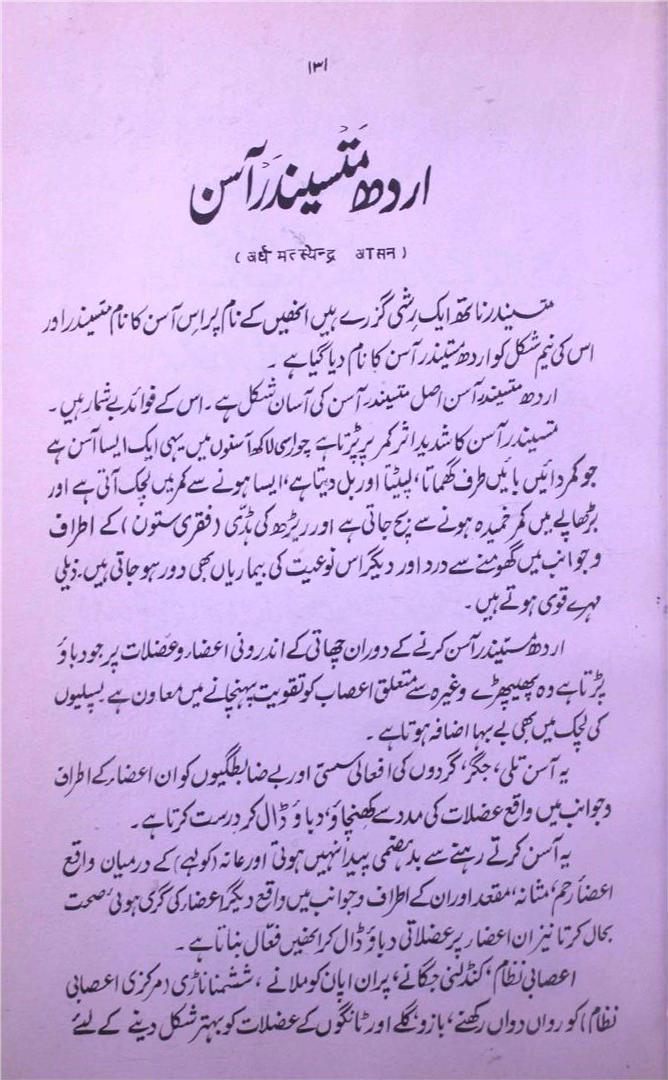 ۱۳۱
اردھ متسیندر آسن
( अर्ध मत्स्येन्द्र आसन )
متسیندر ناتھ ایک رشی گزرے ہیں انھیں کے نام پر اس آسن کا نام متسیندر اور
اس کی نیم شکل کو اردھ متسیندر آسن کا نام دیا گیا ہے ۔
اردھ متسیندر آسن اصل متسیندر آسن کی آسان شکل ہے۔ اس کے فوائد بے شمار ہیں۔
متسیندر آسن کا شدید اثر کمر پر پڑتا ہے چوراسی لاکھ آسنوں میں یہی ایک ایسا آسن ہے
جو کمر دائیں بائیں طرف گھماتا، لپیٹتا اور بل دیتا ہے، ایسا ہونے سے کمر میں لچک آتی ہے اور
بڑھاپے میں کمر خمیدہ ہونے سے بچ جاتی ہے اور ریڑھ کی ہڈی (فقری ستون) کے اطراف
و جوانب میں گھومنے سے درد اور دیگر اس نوعیت کی بیماریاں بھی دور ہو جاتی ہیں۔ ذیلی
مہرے قوی ہوتے ہیں ۔
اردھ متسیندر آسن کرنے کے دوران چھاتی کے اندرونی اعضاء و عضلات پر جو دباؤ
پڑتا ہے وہ پھیپھڑے وغیرہ سے متعلق اعصاب کو تقویت پہنچانے میں معاون ہے۔ پسلیوں
کی لچک میں بھی بے بہا اضافہ ہوتا ہے ۔
یہ آسن تلی، جگر، گردوں کی افعالی سستی اور بے ضابطگیوں کو ان اعضاء کے اطراف
و جوانب میں واقع عضلات کی مدد سے کھنچاؤ، دباؤ ڈال کر درست کرتا ہے۔
یہ آسن کرتے رہنے سے بدہضمی پیدا نہیں ہوتی اور عانہ (کولہے) کے درمیان واقع
اعضاء رحم، مثانہ، مقعد اور ان کے اطراف و جوانب میں واقع دیگر اعضاء کی گری ہوئی صحت
بحال کرتا نیز ان اعضاء پر عضلاتی دباؤ ڈال کر انھیں فعّال بناتا ہے ۔
اعصابی نظام، کنڈلنی جگانے، پران اپان کو ملانے ، ششمنا ناڑی (مرکزی اعصابی
نظام) کو رواں دواں رکھنے، بازو، گلے اور ٹانگوں کے عضلات کو بہتر شکل دینے کے لئے